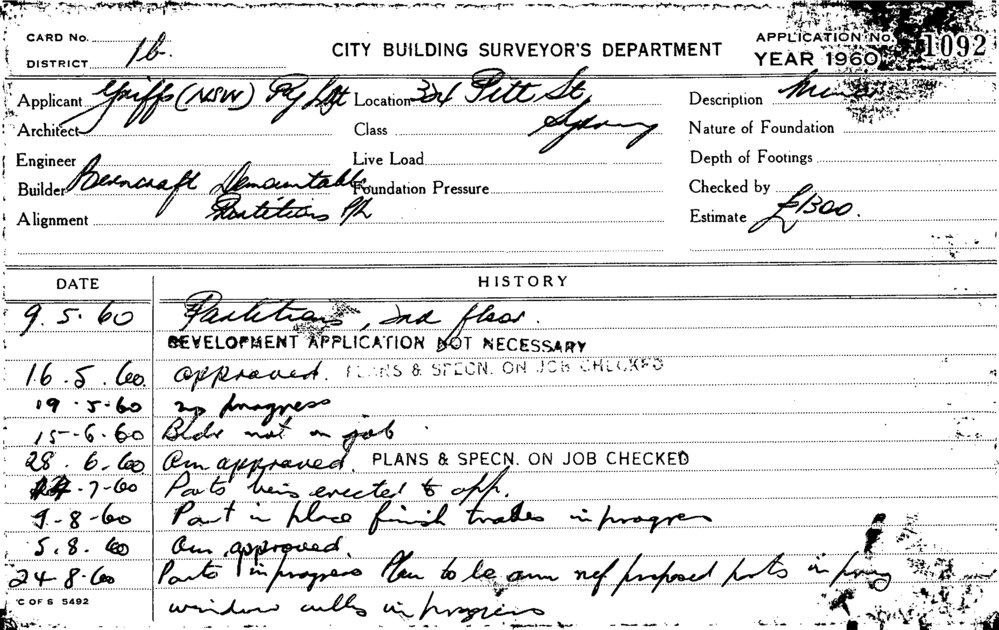 CARD No.
DISTRICT 1b.
CITY BUILDING SURVEYOR'S DEPARTMENT
APPLICATION No. 1092
YEAR 1960
Applicant (NSW) Pty Ltd
Location 324 Pitt St,
Sydney
Description
Architect
Class
Nature of Foundation
Engineer
Live Load
Depth of Footings
Builder Demountable
Partitions P/L
Foundation Pressure
Checked by
Alignment
Estimate £1300.
DATE HISTORY
9.5.60 Partitions, 2nd floor.
DEVELOPMENT APPLICATION NOT NECESSARY
16.5.60. approved. PLANS & SPECN. ON JOB CHECKED
19.5.60 no progress
15-6.60 Bldr not on job.
28.6.60 Am approved. PLANS & SPECN. ON JOB CHECKED
-7-60 Parts being erected to app.
9-8-60 Part in place finish trades in progress
5.8.60 Am approved.
24.8.60 Parts in progress Plan to be am ref proposed parts in
window in progress
C OF S 5492